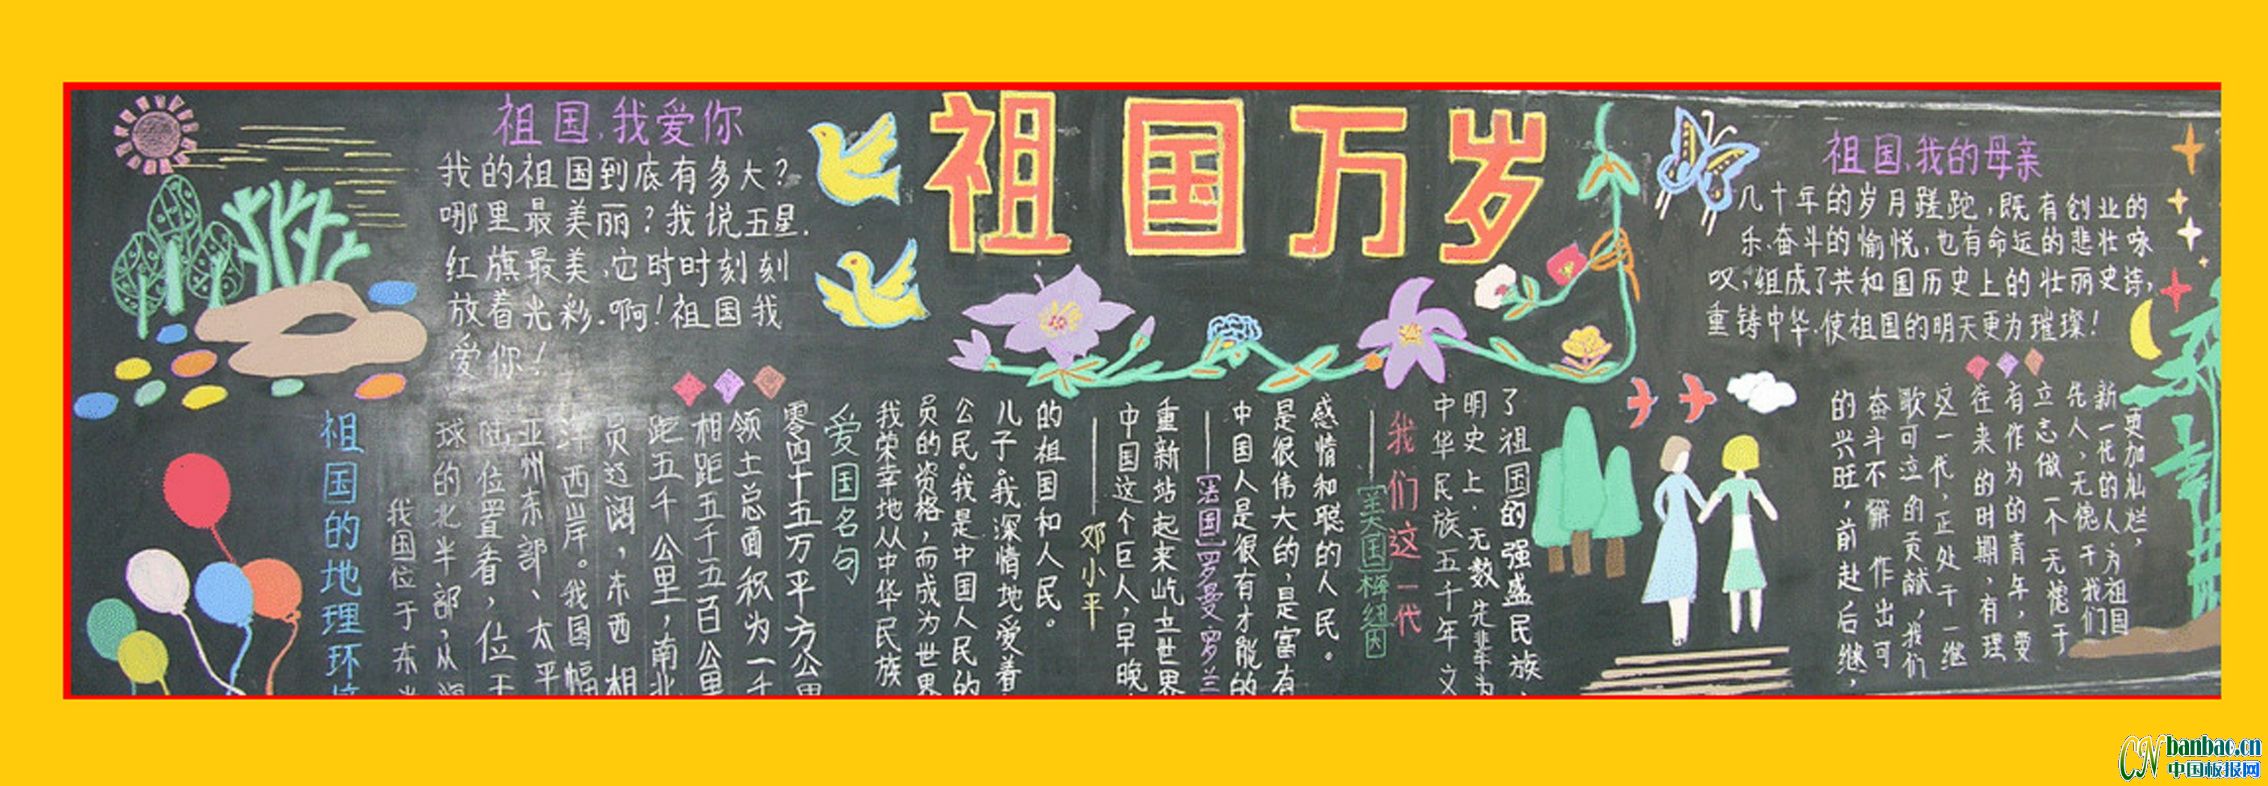 祖国万岁
祖国,我爱你
我的祖国到底有多大?
哪里最美丽?我说五星
红旗最美,它时时刻刻
放着光彩.啊!祖国我
爱你!
祖国,我的母亲
几十年的岁月蹉跑,既有创业的
乐.奋斗的愉悦,也有命运的悲壮咏
叹,组成了共和国历史上的壮丽史诗,
重铸中华.使祖国的明天更为璀璨!
祖国的地理环
我国位于东
球的北半部,从
陆位置看,位于
亚州东部、太平
洋西岸。我国幅
员辽阔,东西相
距五千公里,南北
相距五千五百公里
领土总面积为一千
零四十五万平方公里
爱国名句
我荣幸地从中华民族
员的资格,而成为世界
公民。我是中国人民的
儿子。我深情地爱着
的祖国和人民。
——邓小平
中国这个巨人,早晚
重新站起来屹立世界
——[法国]罗曼罗兰
中国人是很有才能的
是很伟大的,是富有
感情和聪的人民。
——[美国]梅纽因
我们这一代
中华民族五千年文
明史上.无数先辈为
了祖国的强盛民族
的兴旺,前赴后继,
奋斗不懈 作出可
歌可泣的贡献,我们
这一代,正处于一继
往来的时期,有理
有作为的青年,要
立志做一个无愧于
先人,无愧于我们
新一代的人,为祖国
更加灿烂,
CN banbao.cn
中国板报网